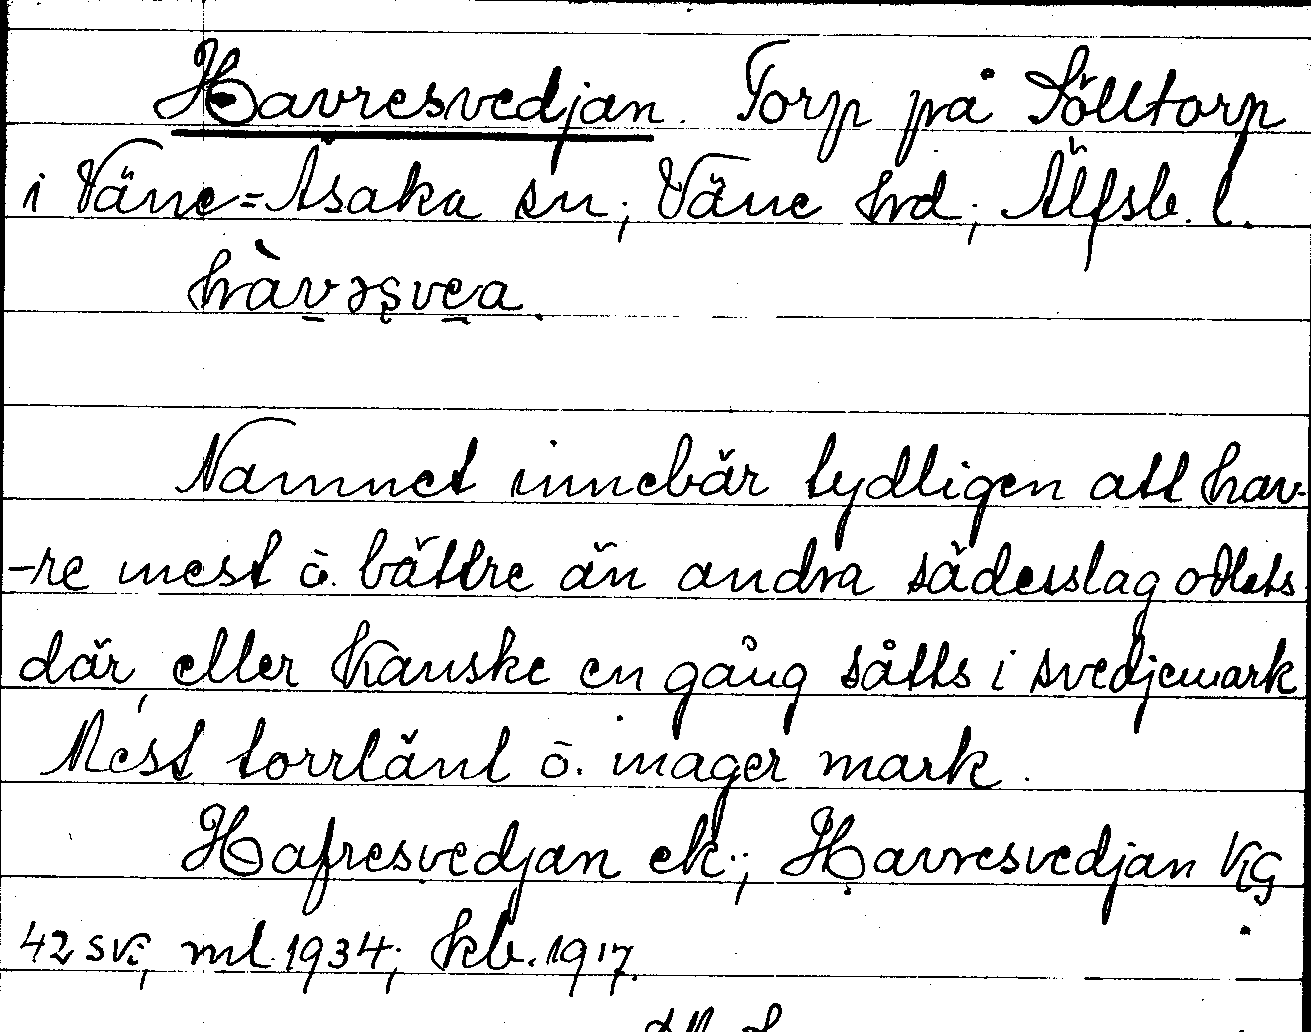 Havresvedjan. Torp på Sölltorp
i Väne=Åsaka sn; Väne hrd; Älfsb. l.
hàvəsvea.
Namnet innebär tydligen att hav-
-re mest o. bättre än andra sädesslag odlats
där, eller kanske en gång såtts i svedjemark
Mest torrlänt o. mager mark.
Hafresvedjan ek.; Havresvedjan KG
42 sv; ml 1934; kb. 1917.